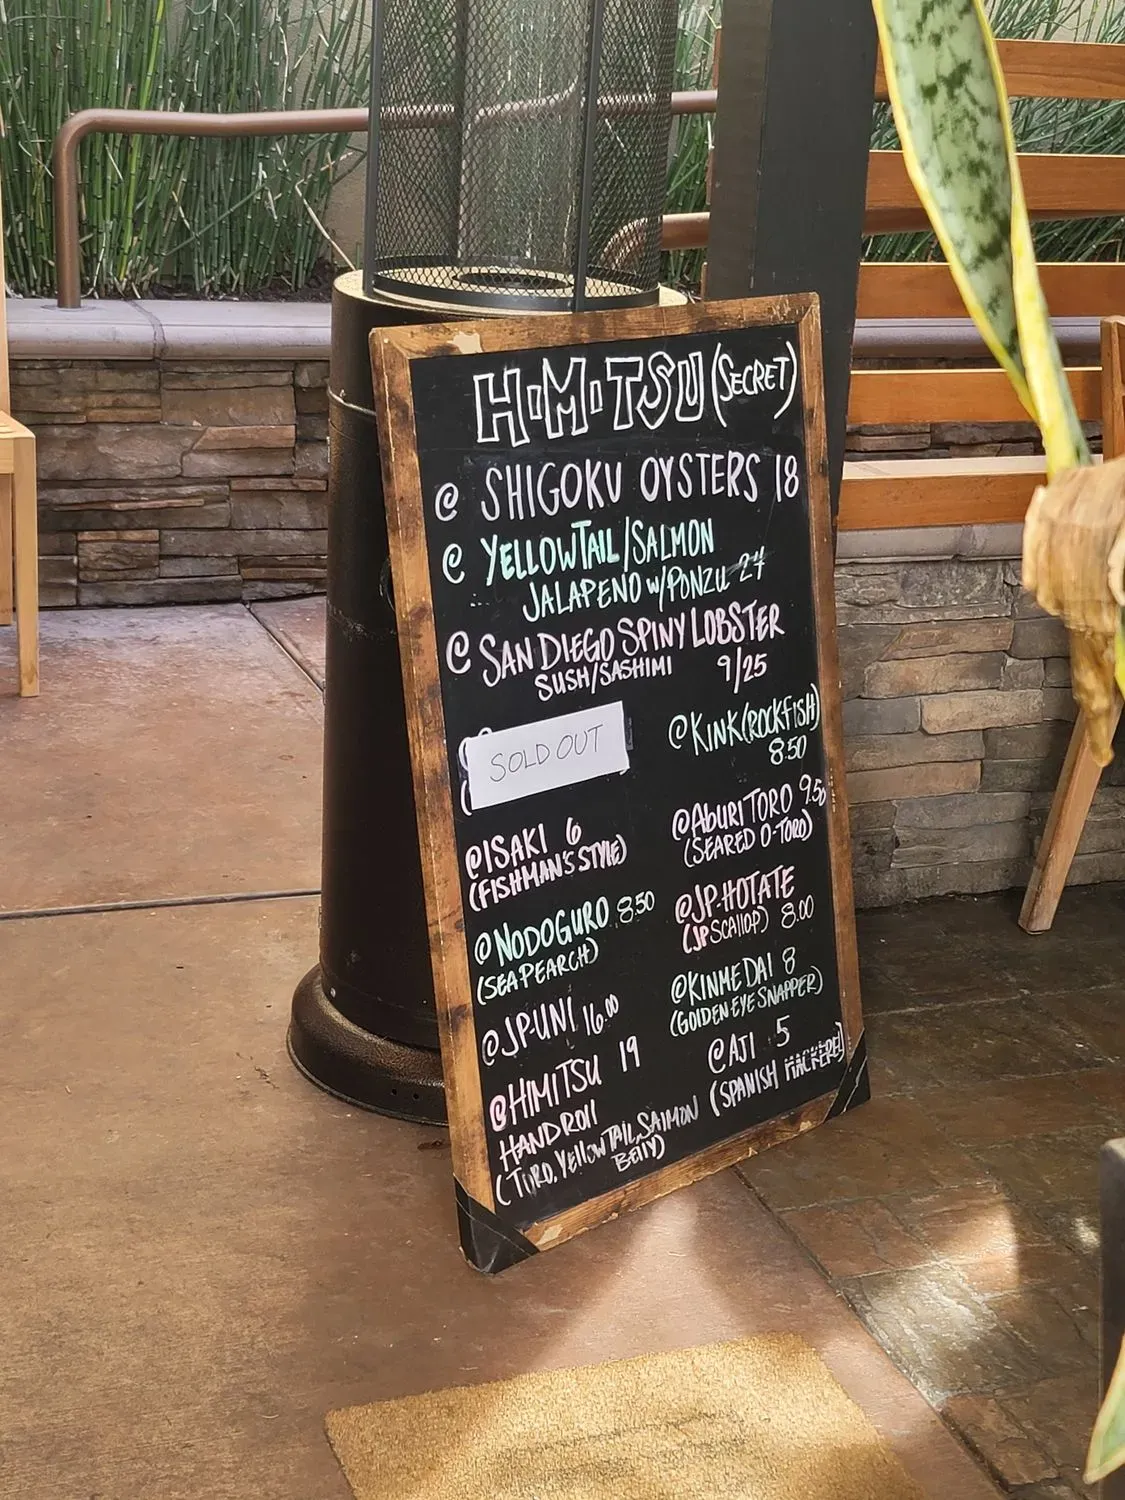 H·M·TSU (SECRET)
@ SHIGOKU OYSTERS 18
@ YELLOWTAIL/SALMON
JALAPENO w/PONZU 24
@ SAN DIEGO SPINY LOBSTER
SUSH/SASHIMI 9/25
SOLD OUT
@ KINK (ROCKFISH)
8.50
@ ISAKI 6
(FISHMAN'S STYLE)
@ ABURI TORO 9.50
(SEARED O-TORO)
@ NODOGURO 8.50
(SEA PEARCH)
@ JP-HOTATE
(JP SCALLOP) 8.00
@ JP-UNI 16.00
@ KINME DAI 8
(GOLDEN EYE SNAPPER)
@ HIMITSU 19
HANDROLL
(TORO, YELLOWTAIL, SALMON
BELLY)
@ AJI 5
(SPANISH MACKEREL)